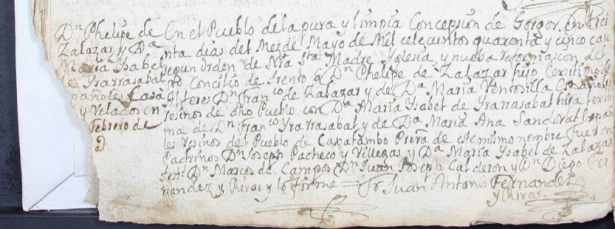 Dn Phelipe de
Zalazar y Da
Maria Isabel
de Irarrasabal
españoles Casa
y Velados en
febrero de
En el Pueblo de la pura y limpia Concepcion de Gorgor en tre
nta dias del Mes de Mayo de Mil setesientos quarenta y cinco cas
segun orden de Nra Sta Madre Yglesia y nuebo
to Concilio de Trento a Dn Phelipe de Zalazar hijo lexitimo de
Dn Franco de Zalazar y de Da Maria
Vesinos de dho Pueblo con Da Maria Isabel de Irarrasabal hija lexiti
ma de Dn Franco Yrarrasabal y de Da Maria Ana Sandoval Espano
les Vesinos del Pueblo de Caxatambo Prova de este mismo nombre fueron
Padrinos Dn Joseph Pacheco y Villegas y Da Maria Isabel de Zalazar
Dn Marcos de Campos Dn Juan Joseph Calderon y Dn Diego Fer
nendez y Rivas y lo firme
Juan Antonio Fernandez
y Rivas